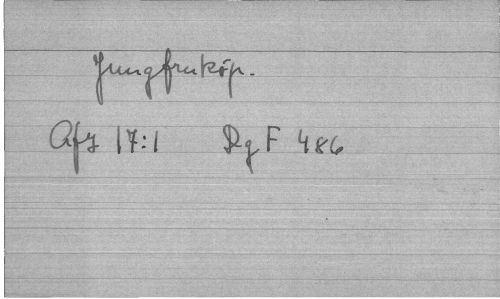 Jungfruköp.
Afz 17:1 RgF 486